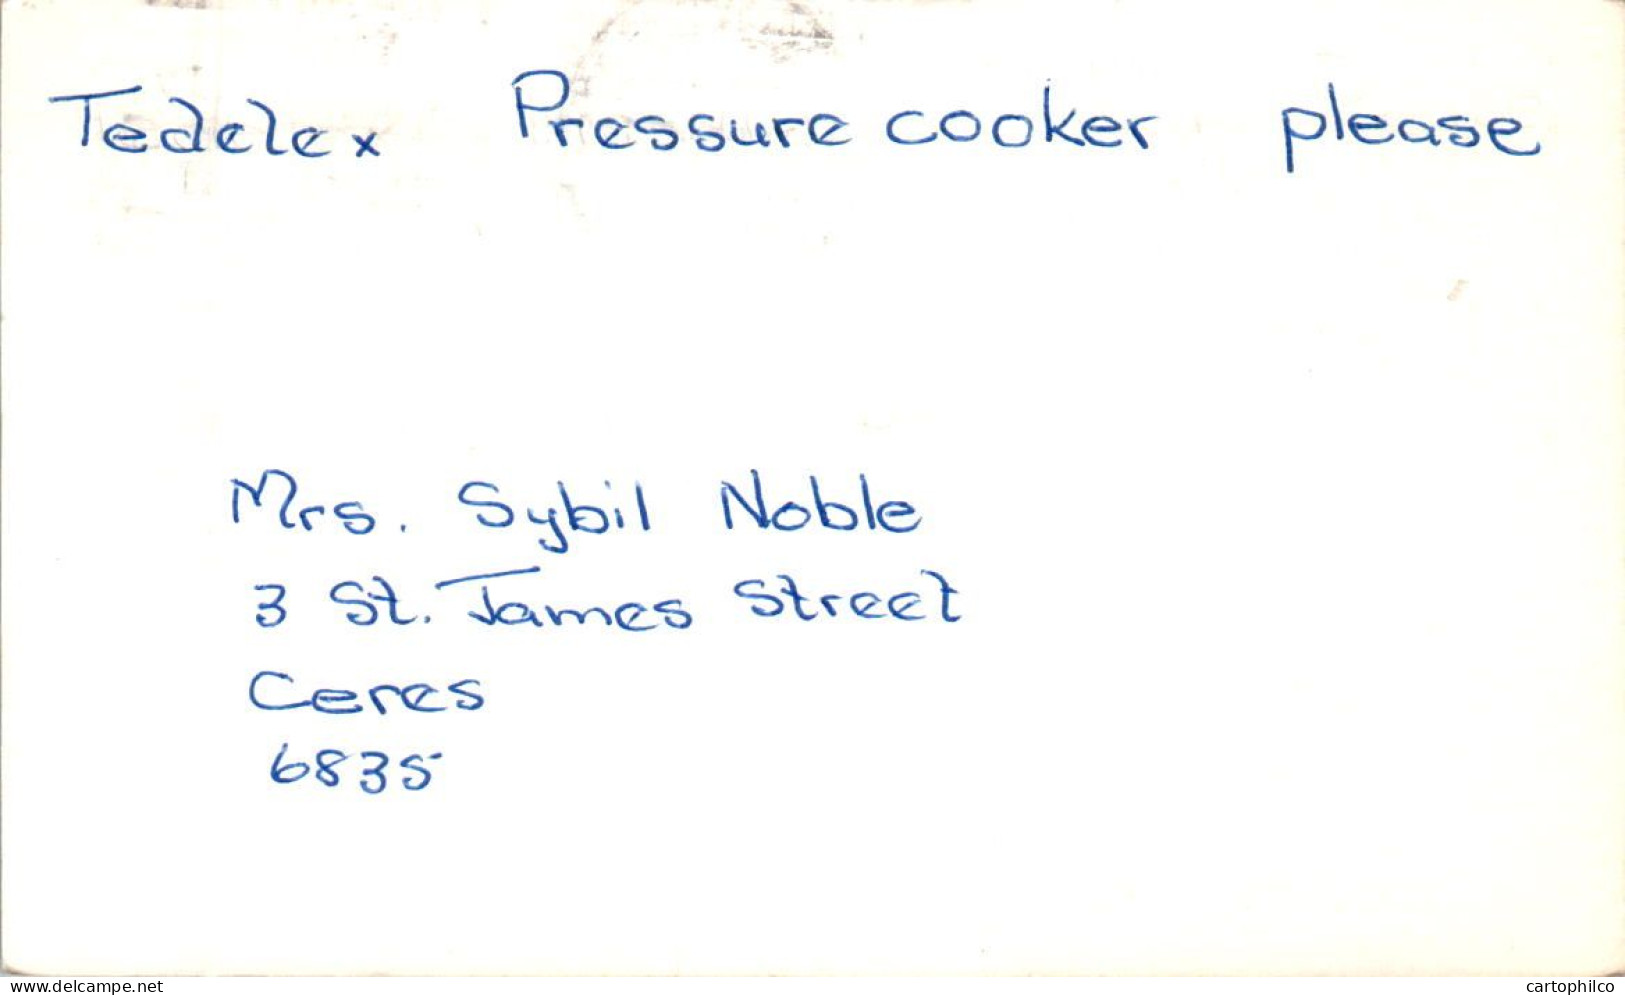 Tedelex Pressure cooker please
Mrs. Sybil Noble
3 St. James Street
Ceres
6835
www.delcampe.net cartophilco